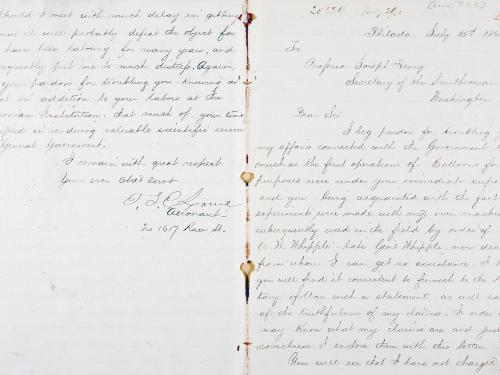 should I meet with much delay in getting
it will probably defeat the object for
have been laboring for many years, and
put me to much distress. Again,
your pardon for troubling you. Knowing as
in addition to your labors at the
Institution, that much of your time
in rendering valuable scientific
General Government.
I remain with great respect
Your ever obdt servt
T. S. C. Lowe
Aeronaut
No 1617 Race St.
Philada. July 15th 186
To
Professor Joseph Henry
Secretary of the Smithsonian
Washington
Dear Sir
I beg pardon for troubling
my affairs connected with the Government
much as the first operations of Balloons for
purposes were under your immediate
and you being acquainted with the fact
experiments were made with my own
subsequently used in the field by order of
A. W. Whipple - late Genl Whipple, now
from whom I can get no assistance. I
you will find it consistent to furnish to the
of War such a statement as will
of the truthfulness of my claims. In order
may know what my claims are and
correctness I enclose them with this letter
You will see that I have not charged